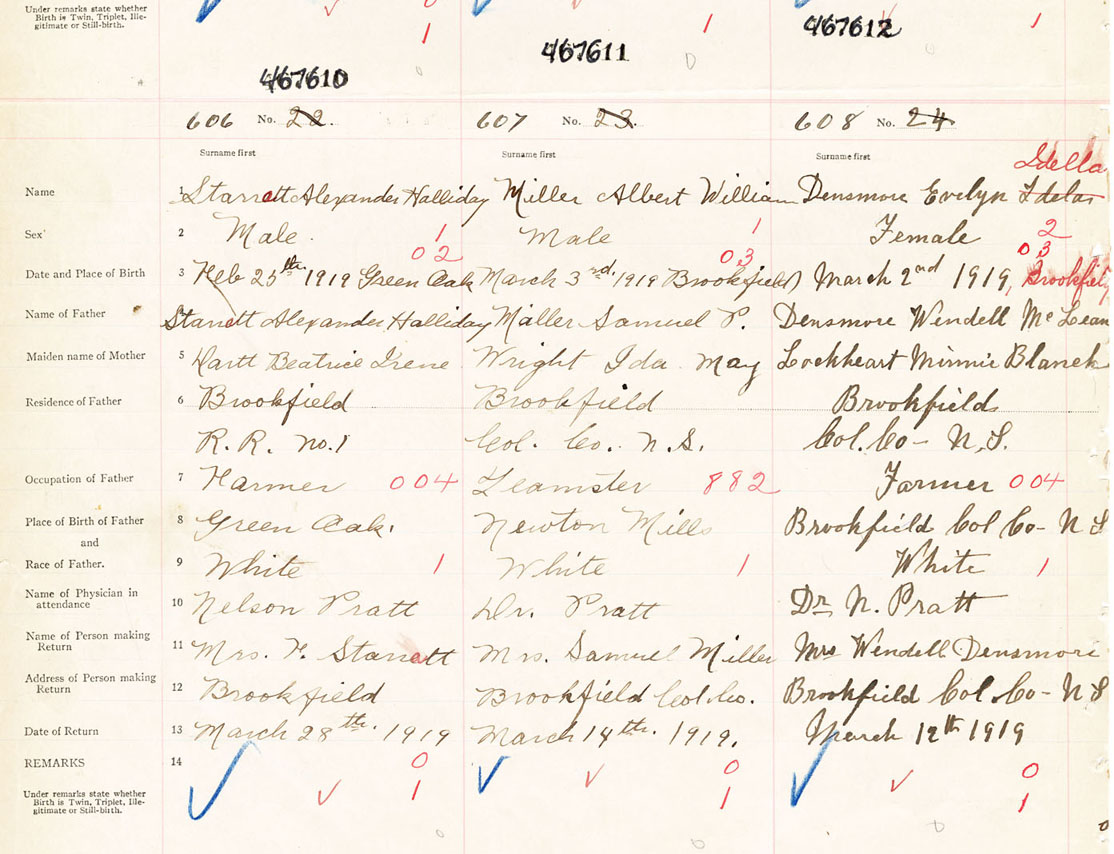 Under remarks state whether
Birth is Twin, Triplet, Ille-
gitimate or Still-birth.
0
1
1
1
467610
467611
467612
606 No. 22.
607 No. 23.
608 No. 24
Surname first
Surname first
Surname first
Idella
Name
1 Starratt Alexander Halliday
Miller Albert William
Densmore Evelyn Idelas
Sex
2 Male. 1
Male 1
Female 2
02
03
03
Date and Place of Birth
3 Feb 25th 1919 Green Oak
March 3nd, 1919 Brookfield
March 2nd 1919, Brookfield
Name of Father
Starratt Alexander Halliday
Miller Samuel P.
Densmore Wendell McLean
Maiden name of Mother
5 Hartt Beatrice Irene
Wright Ida May
Lockheart Minnie Blanch
Residence of Father
6 Brookfield
Brookfield
Brookfields
R. R. no. 1
Col. Co. N.S.
Col. Co- N.S.
Occupation of Father
7 Farmer 004
Teamster 882
Farmer 004
Place of Birth of Father
8 Green Oak.
Newton Mills
Brookfield Col Co- N S
and
Race of Father.
9 White 1
White 1
White 1
Name of Physician in
attendance
10 Nelson Pratt
Dr. Pratt
Dr N. Pratt
Name of Person making
Return
11 Mrs. F. Starratt
Mrs. Samuel Miller
Mrs Wendell Densmore
Address of Person making
Return
12 Brookfield
Brookfield Col. Co.
Brookfield Col. Co- N S
Date of Return
13 March 28th. 1919
March 14th. 1919.
March 12th 1919
REMARKS
14
0
0
0
Under remarks state whether
Birth is Twin, Triplet, Ille-
gitimate or Still-birth.
1
1
1